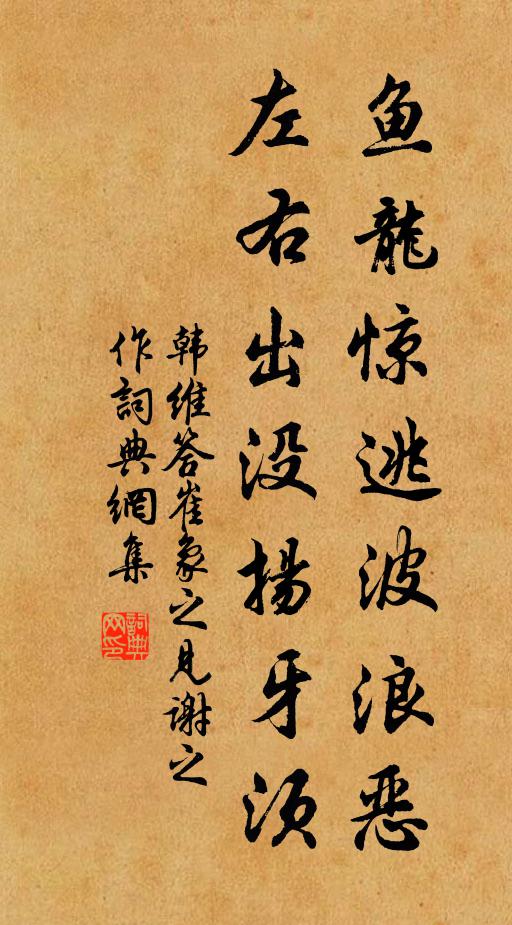 鱼龍惊逃波浪恶
左右出没揚牙须
韩维答崔象之見謝之
作詞典網集
詞典网印